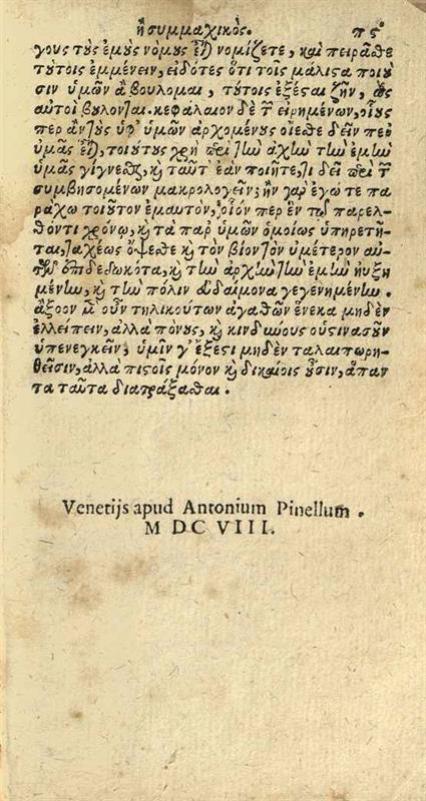 ἢ συμμαχικὸς. πς
γους τοὺς ἐμοὺς νόμους εἶναι νομίζετε, καὶ πειρᾶσθε
τούτοις ἐμμένειν, εἰδότες ὅτι τοῖς μάλιστα ποιοῦ
σιν ὑμῶν ἃ βούλομαι, τούτοις ἐξέσται ζῆν, ὡς
αὐτοὶ βούλονται. κεφάλαιον δὲ τῶν εἰρημένων, οἵους
περ ἂν τοὺς ὑφ' ὑμῶν ἀρχομένους οἴεσθε δεῖν περὶ
ὑμᾶς εἶναι, τοιούτους χρὴ περὶ τὴν ἀρχὴν τὴν ἐμὴν
ὑμᾶς γίγνεσθαι, καὶ ταῦτ' ἐὰν ποιῆτε, τί δεῖ περὶ τῶν
συμβησομένων μακρολογεῖν; ἢν γὰρ ἐγώ τε πα
ράχω τοιοῦτον ἐμαυτὸν, οἷόν περ ἐν τῷ παρελ-
θόντι χρόνῳ, καὶ τὰ παρ' ὑμῶν ὁμοίως ὑπηρετῆ-
ται, ταχέως ὄψεσθε καὶ τὸν βίον τὸν ὑμέτερον αὐ-
τῶν ἐπιδεδωκότα, καὶ τὴν ἀρχὴν τὴν ἐμὴν ηὐξη
μένην, καὶ τὴν πόλιν εὐδαίμονα γεγενημένην.
ἄξιον μὲν οὖν τηλικούτων ἀγαθῶν ἕνεκα μηδὲν
ἐλλείπειν, ἀλλὰ πόνους, καὶ κινδύνους οὑστινασοῦν
ὑπενεγκεῖν, ὑμῖν γ' ἔξεστι μηδὲν ταλαιπωρη-
θεῖσιν, ἀλλὰ πιστοῖς μόνον καὶ δικαίοις οὖσιν, ἅπαν
τα ταῦτα διαπράξασθαι.
Venetijs apud Antonium Pinellum.
M DC VIII.